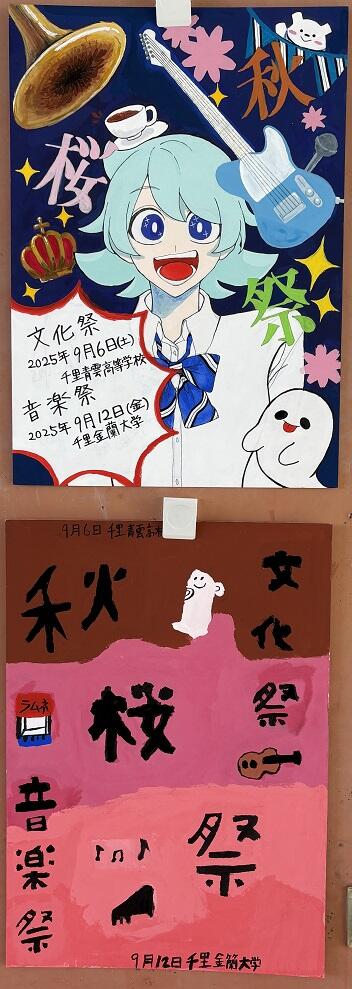 秋
桜
祭
文化祭
2025年 9月6日(土)
千里青雲高等学校
音楽祭
2025年 9月12日(金)
千里金蘭大学
9月6日 千里青雲高
秋
桜
祭
文化祭
ラムネ
音楽祭
9月12日 千里金蘭大学